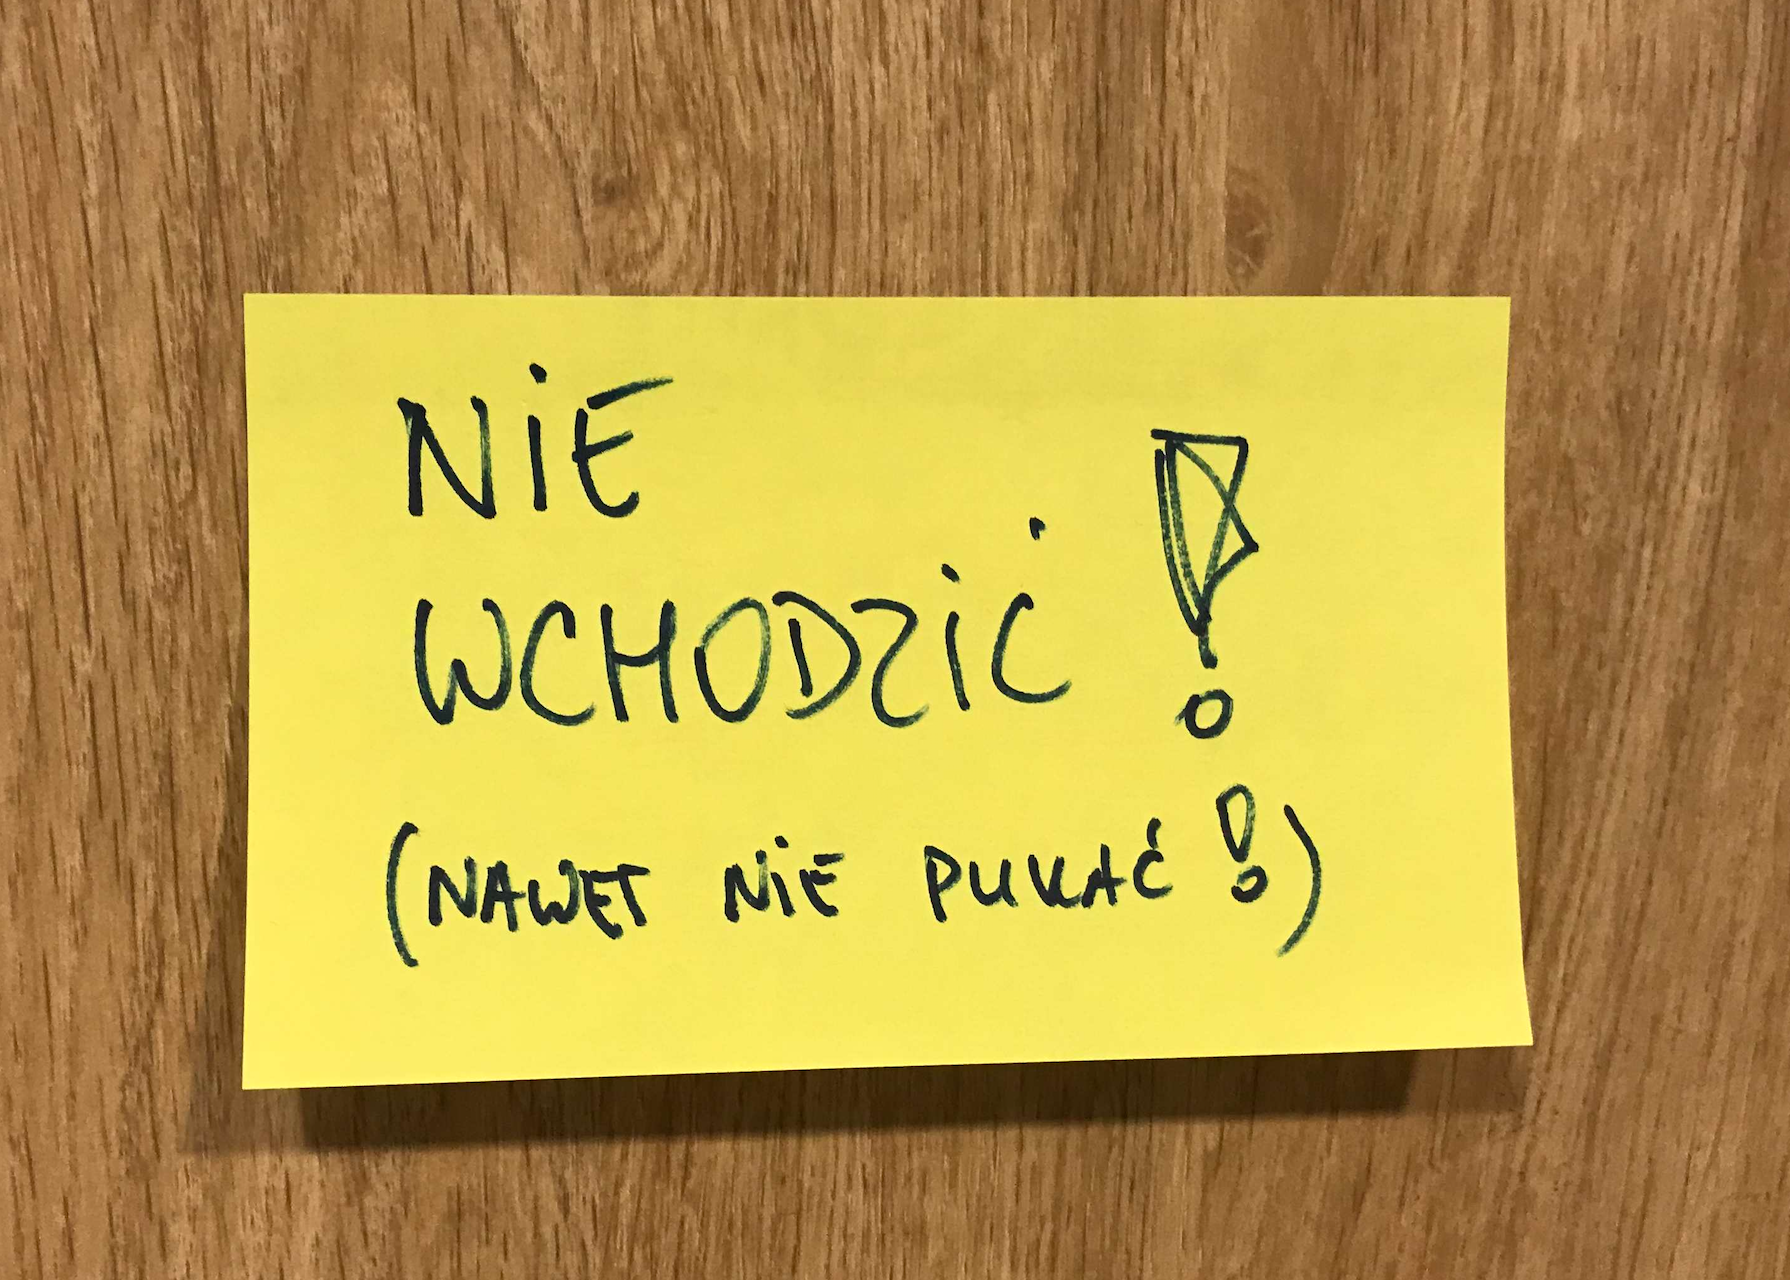 NIE
WCHODZIĆ !
(NAWET NIE PUKAĆ !)